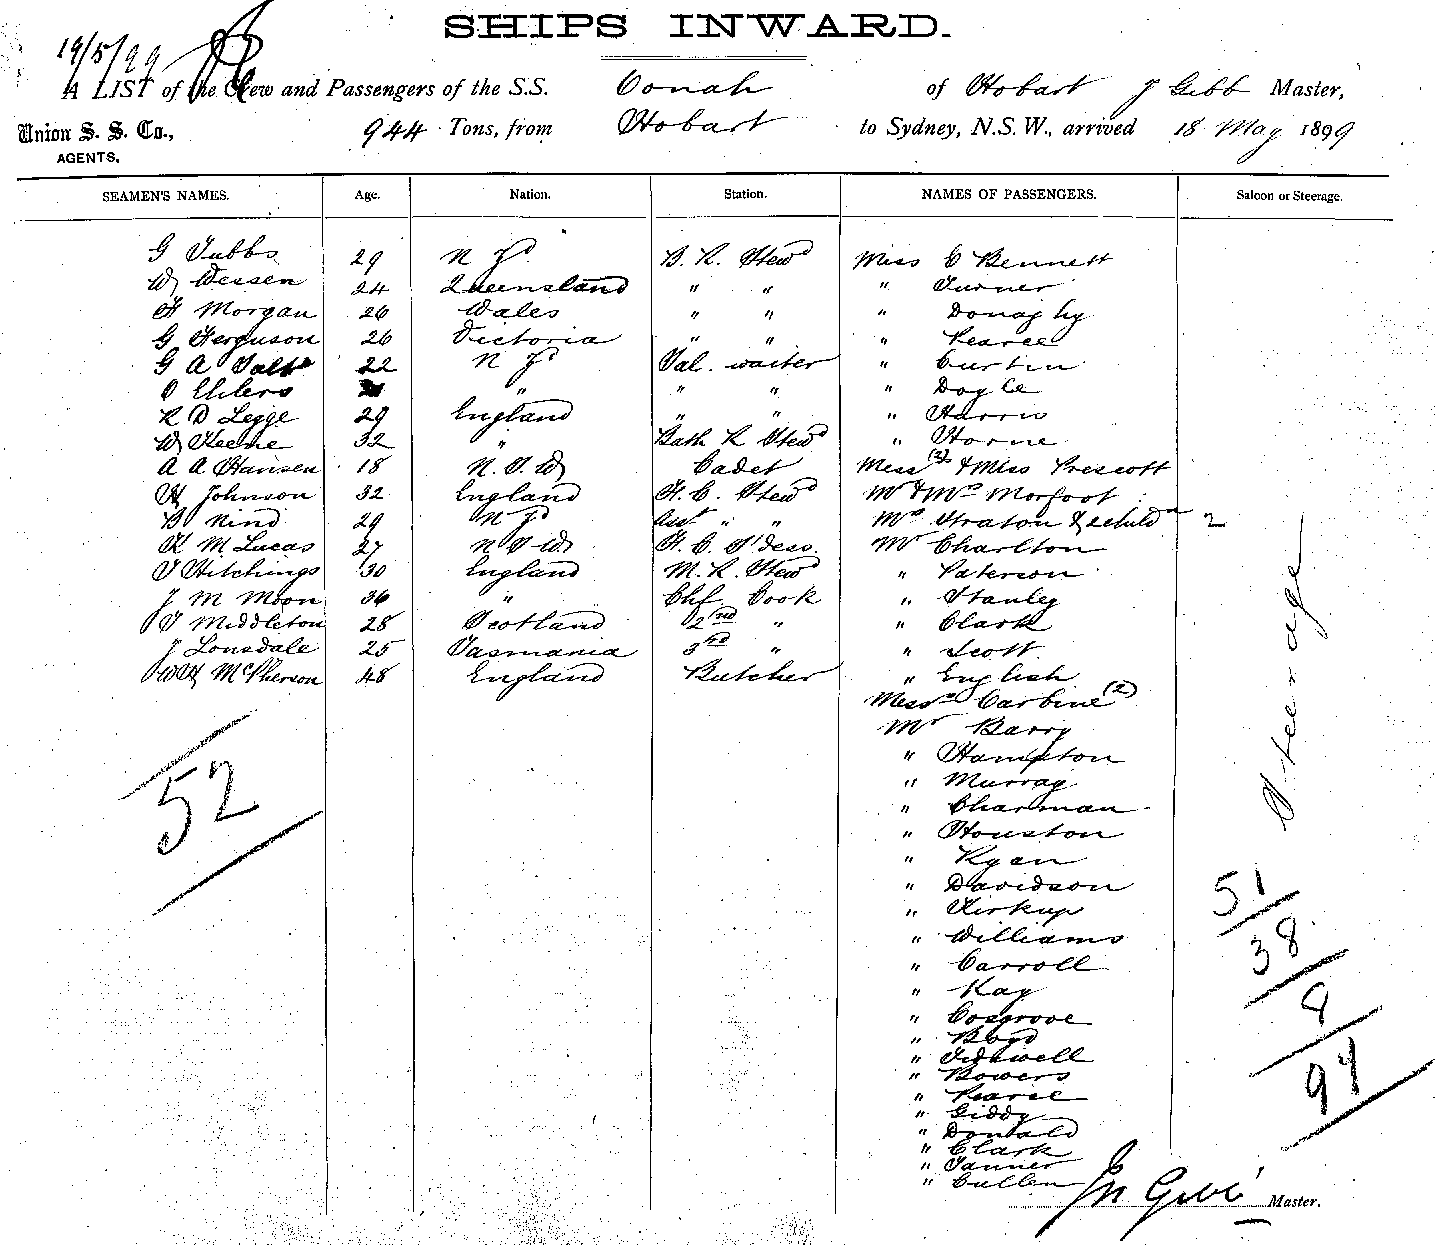 SHIPS INWARD.
19/5/99
A LIST of the Crew and Passengers of the S.S. Oonah of Hobart J Gibb Master,
Union S. S. Co., AGENTS. 944 Tons, from Hobart to Sydney, N.S.W., arrived 18 May 1899
SEAMEN'S NAMES. Age. Nation. Station. NAMES OF PASSENGERS. Saloon or Steerage.
G Tubbs 29 N Zd B. R. Stewd Miss C Bennett
W Wessen 24 Queensland " " " Turner
H Morgan 26 Wales " " " Donaghy
G Ferguson 26 Victoria " " " Pearce
G A Salt 22 N Zd Sal. waiter " Curtin
O Ehlers " " " " Doyle
R D Legge 29 England " " " Harris
W Keene 32 " Bath R Stewd " Horne
A A Hansen 18 N. S. W Cadet Mess (3) & Miss Prescott
H Johnson 32 England F. C. Stewd Mr & Mrs Morfoot
B Nind 29 N Zd Asst " " Mrs Straton & child 2
K M Lucas 27 N S W F. C. S'dess. Mr Charlton
T Hitchings 30 England M. R. Stewd " Paterson
J M Moon 36 " Chf Cook " Stanley
T Middleton 28 Scotland 2nd " " Clark
J Lonsdale 25 Tasmania 3rd " " Scott
W H McPherson 48 England Butcher " English
Messrs Carbine (2)
Mr Barry
" Hampton
" Murray
" Charman
" Houston
" Ryan
" Davidson
" Kirkup
" Williams
" Carroll
" Kay
" Cosgrove
" Boyd
" Tidswell
" Bowers
" Pearce
" Giddy
" Donald
" Clark
" Tanner
" Cullen
52
Steerage
51
38
94
Jn Gibb Master.